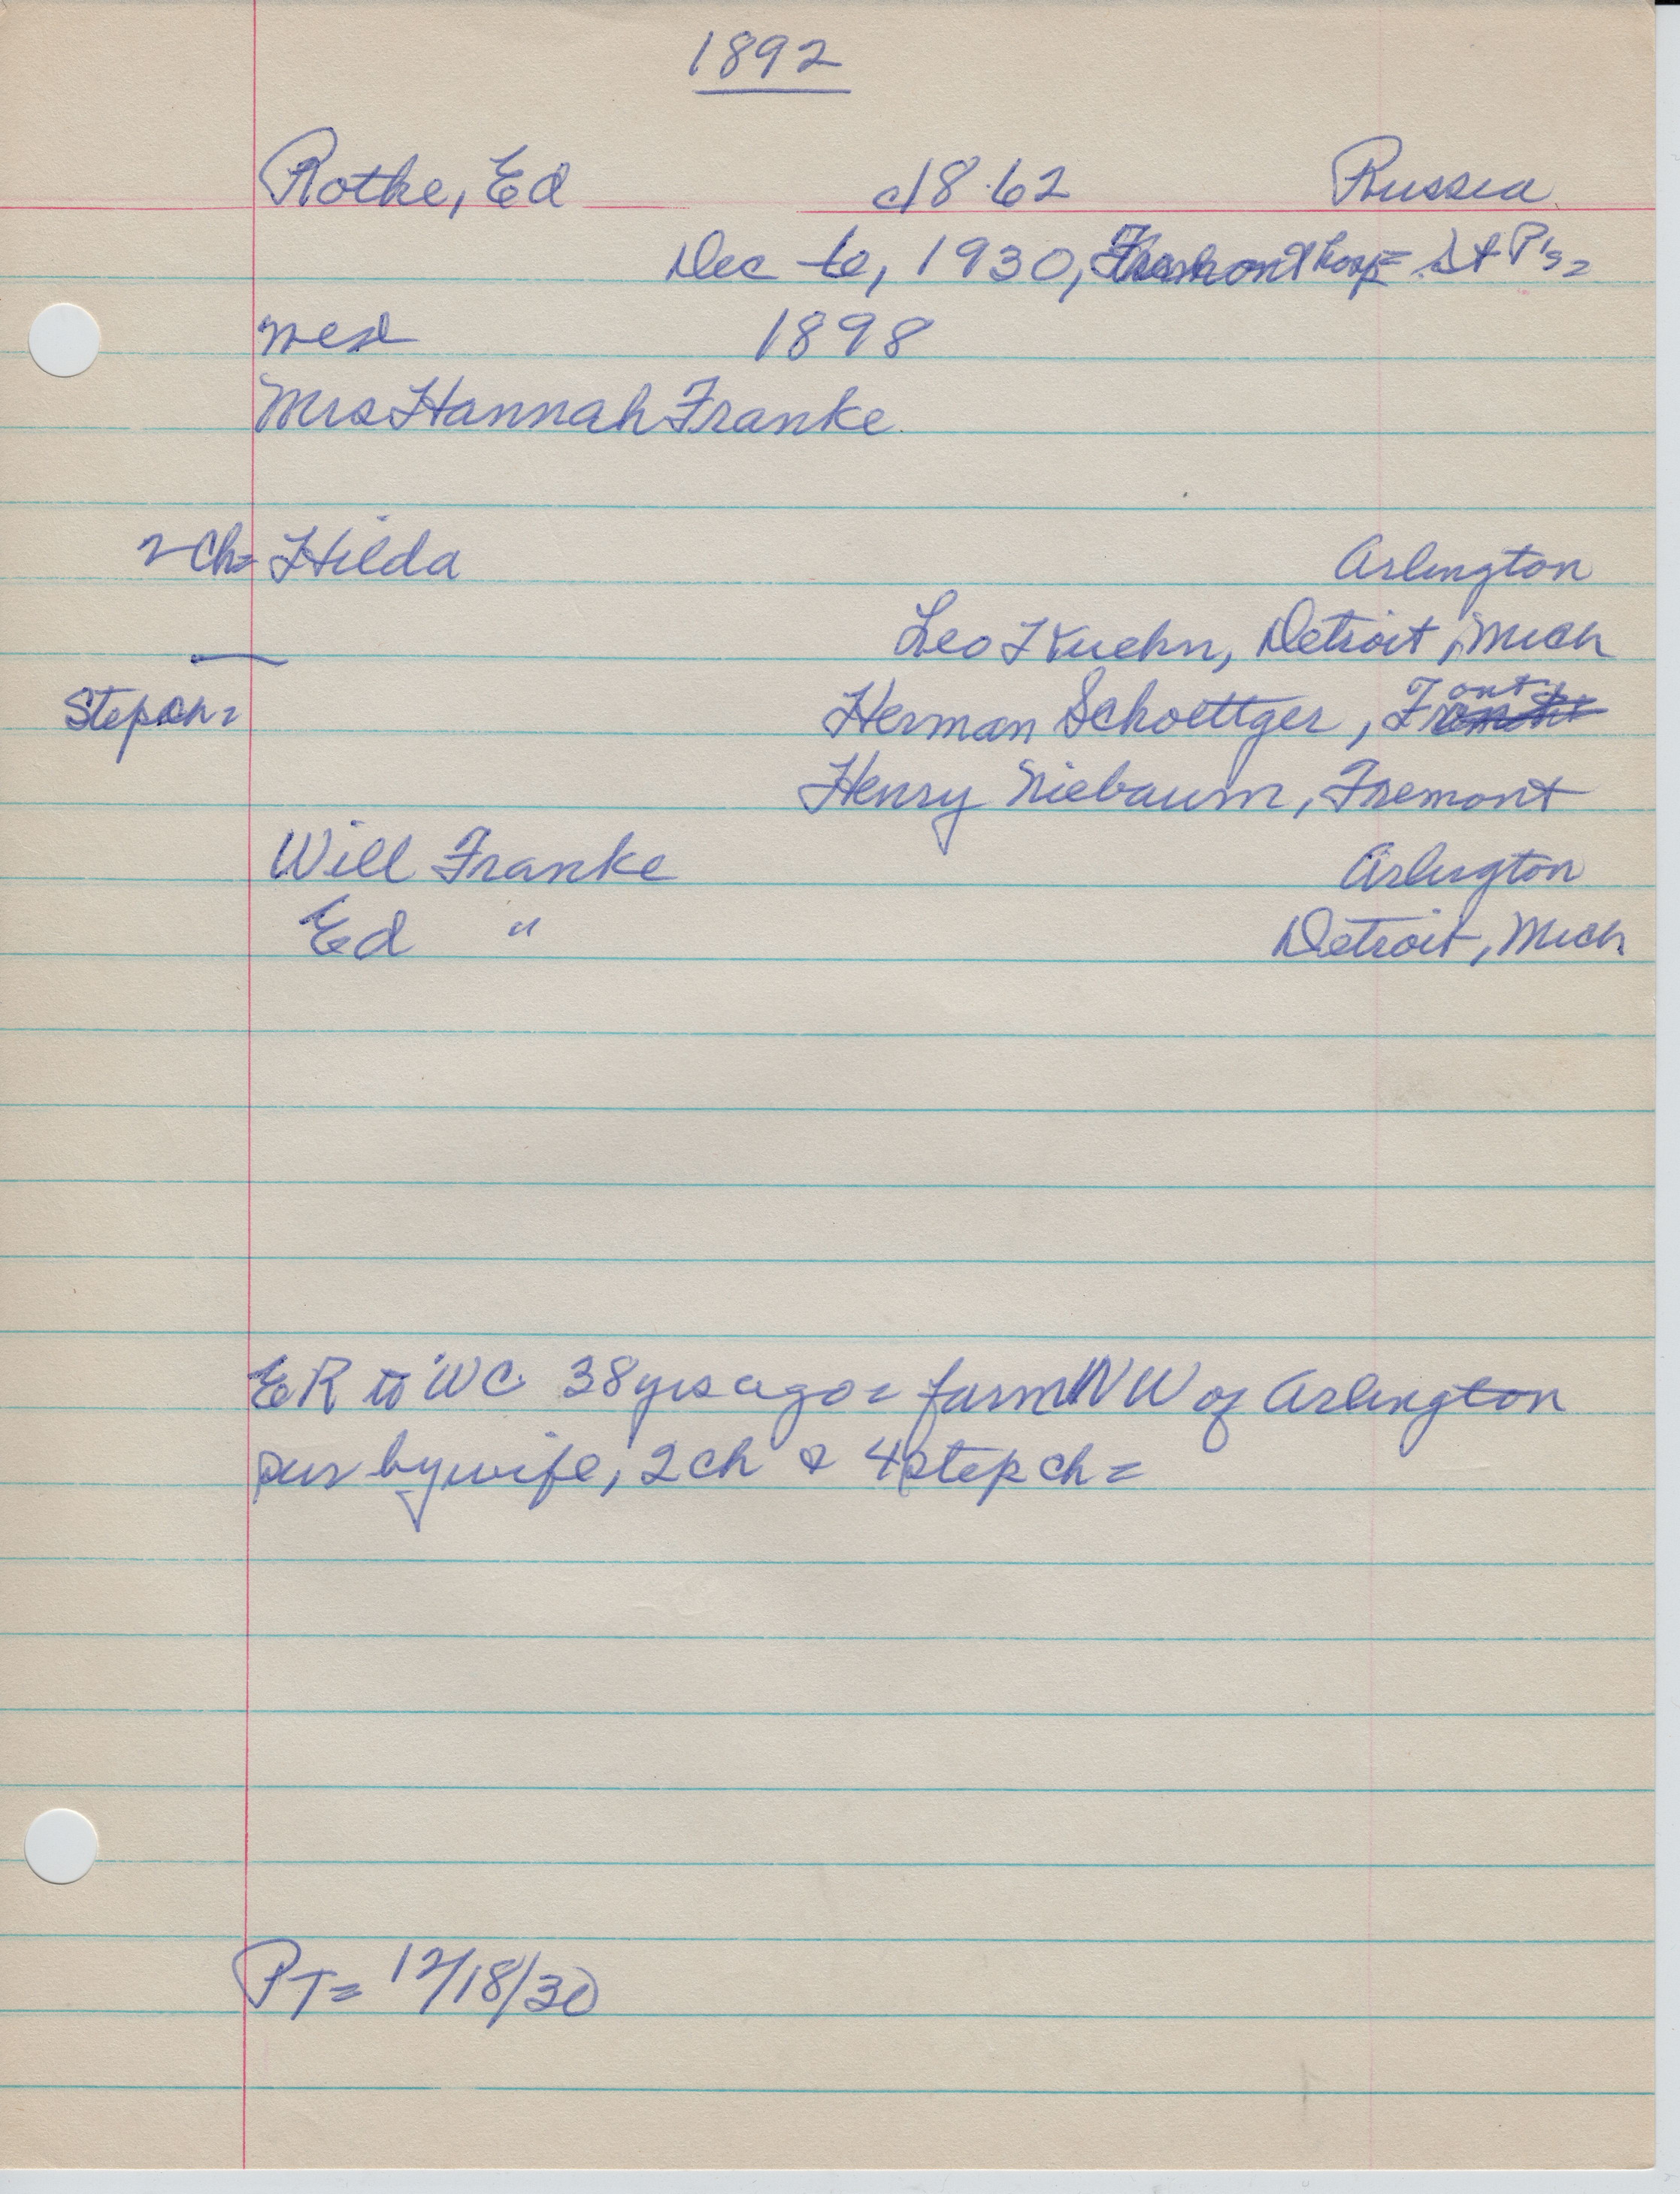 1892
Rothe, Ed c1862 Russia
Dec 6, 1930, Fremont hosp= St P's=
med 1898
Mrs Hannah Franke
2 Ch= Hilda Arlington
Leo Kuehn, Detroit, Mich
Stepch= Herman Schoettger, Fr ont
Henry Niebaum, Fremont
Will Franke Arlington
Ed " Detroit, Mich
ER to WC 38 yrs ago= farm NW of Arlington
sur by wife, 2 ch & 4 step ch=
PT= 12/18/30